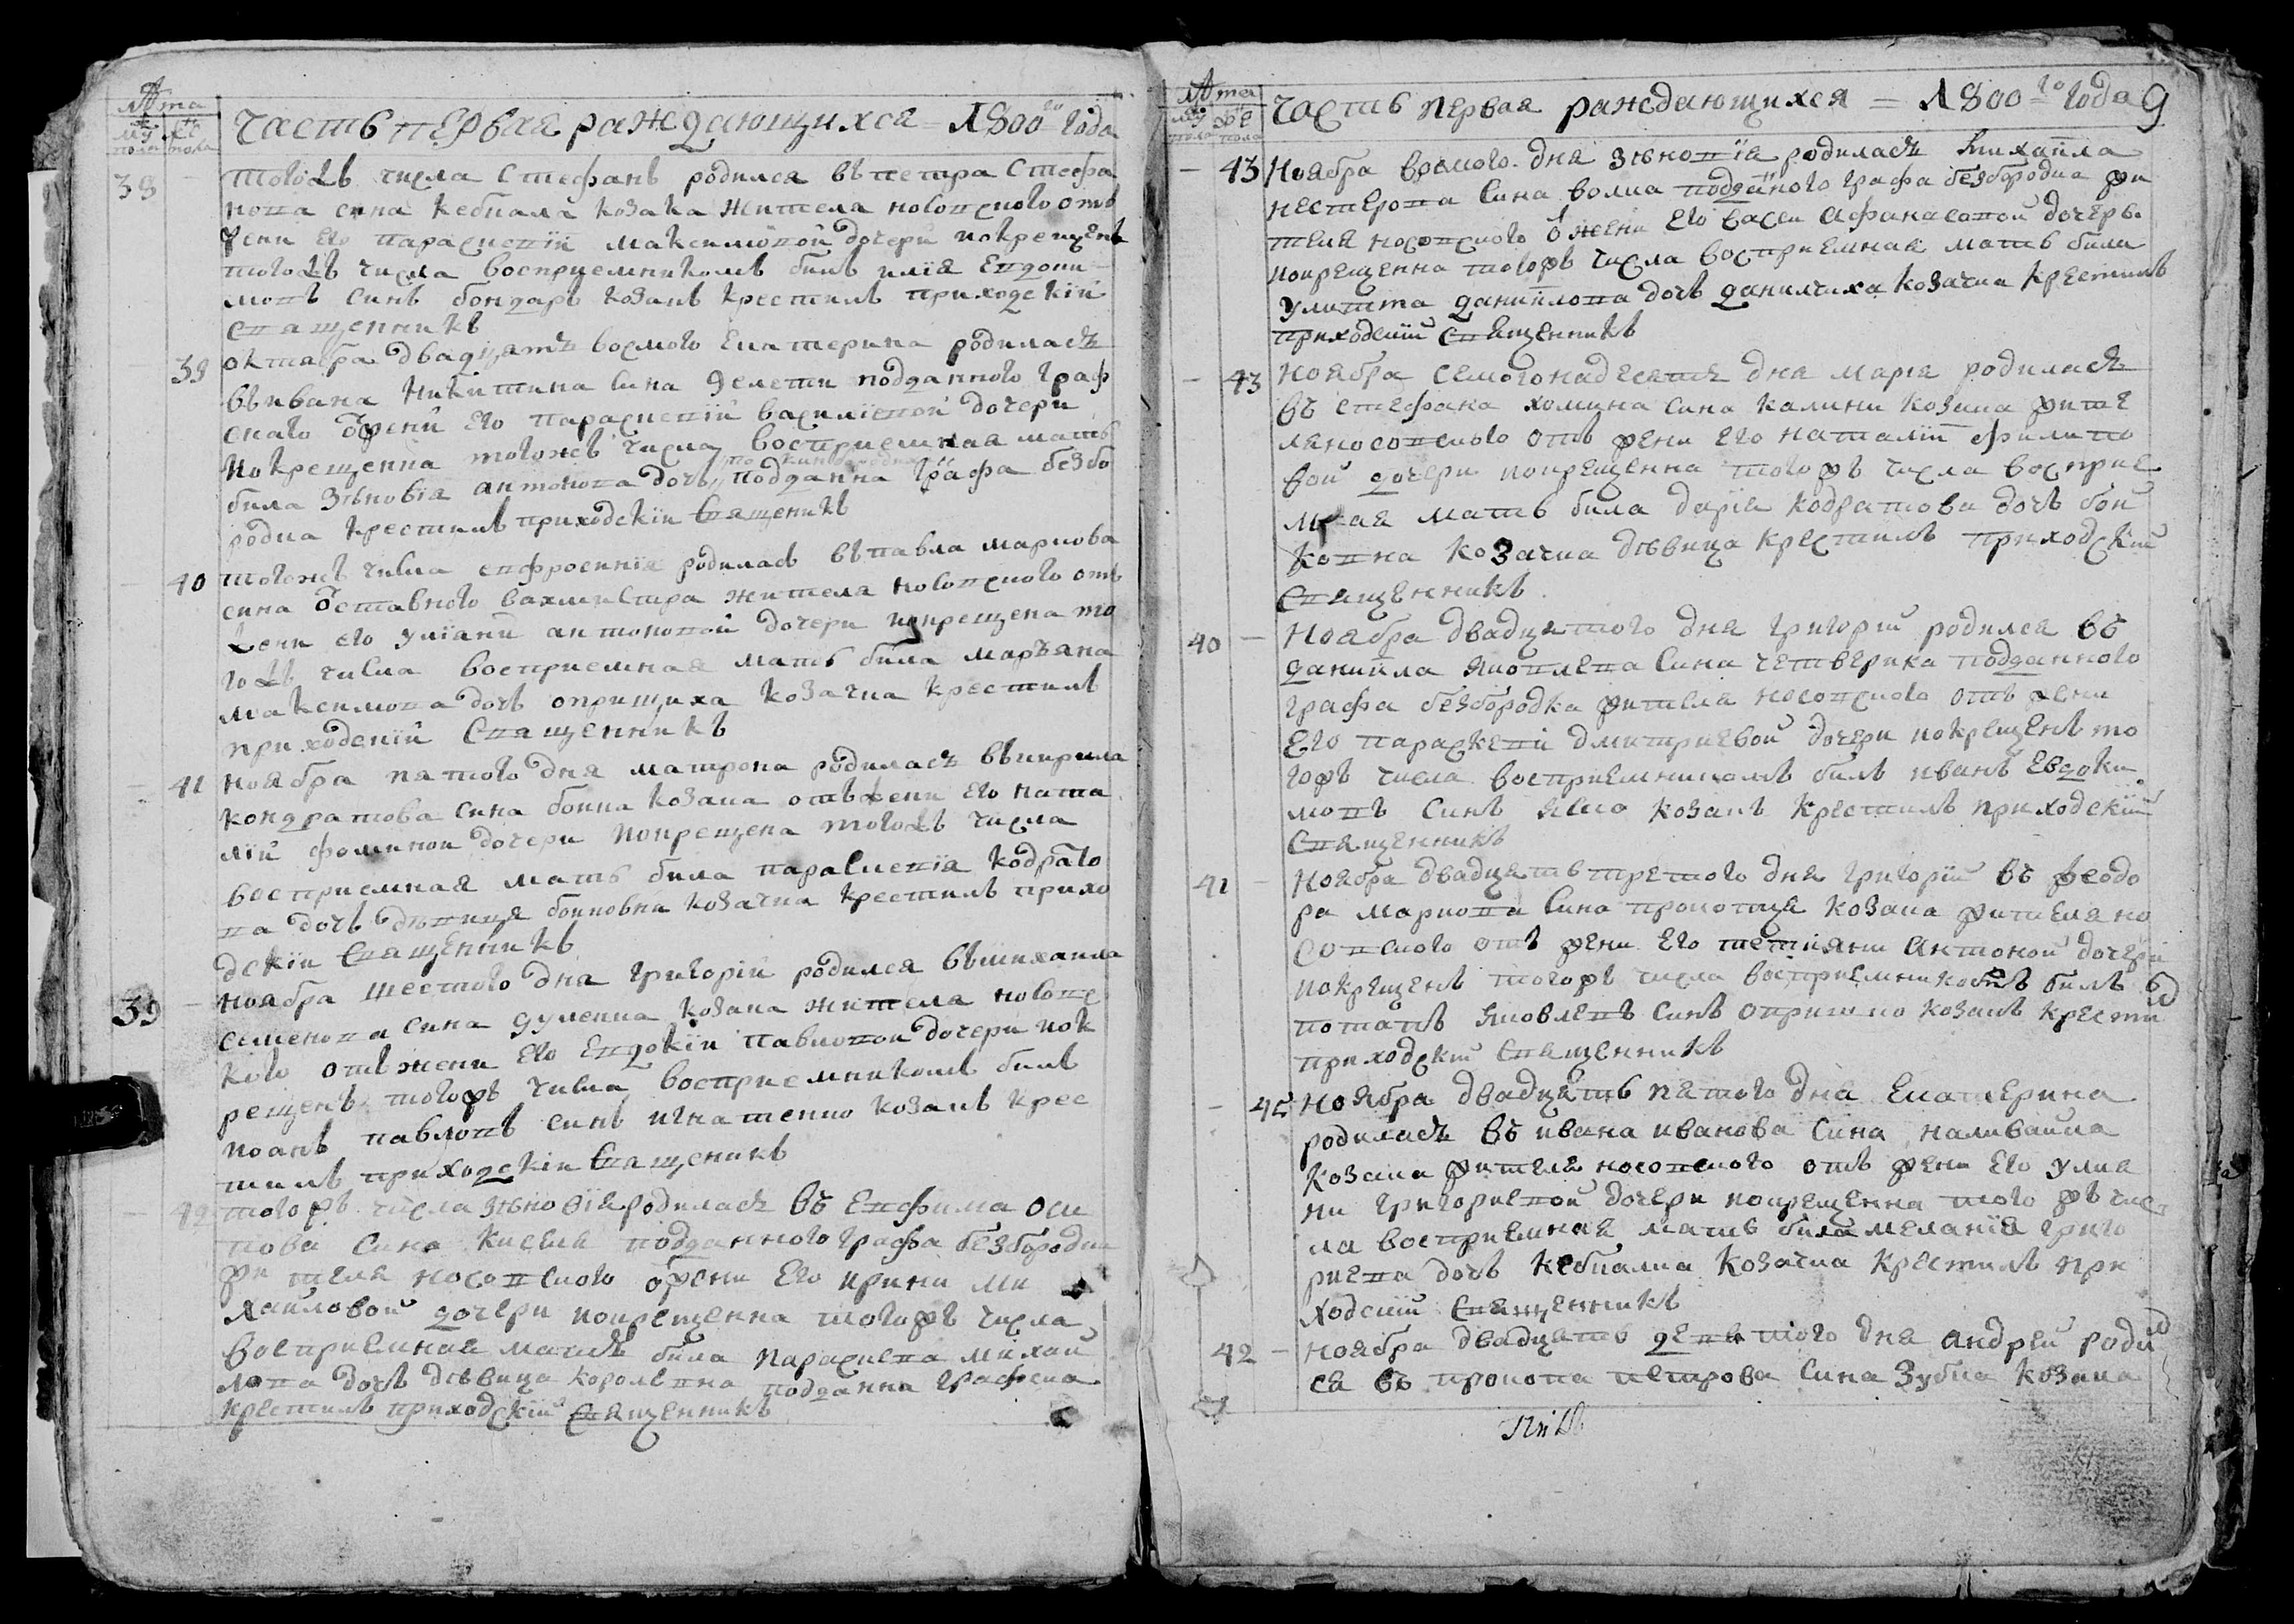 № та
му же
пола пола
Часть первая раждающихся = 1800 го года
38 – тогожъ числа Стефанъ родился въ петра Стефа
нова сина кебкала козака жителя носовского отъ
жени его параскевіи максимовой дочери покрещенъ
тогожъ числа восприемникомъ билъ илія Евдоки
мовъ синъ бондарь козакъ крестилъ приходскій
священникъ
– 39 октября двадцать восмого Екатерина родилась
въ ивана Никитина сина делети подданного граф
ского ѿ жени его параскевіи василіевой дочери
покрещенна тогожъ числа восприемная мать
била зѣновія антонова дочь подданна графа безбо
родка крестилъ приходскіи Священикъ
– 40 тогожъ числа евфросинія родилась въ павла маркова
сина ѿставного вахмистра жителя носовского отъ
жени его уліяни антоновой дочери покрещена то
гожъ числа восприемная мать била маръяна
максимова дочь оприщиха козачка крестилъ
приходскій Священникъ
– 41 ноября пятого дня матрона родилась въ кирила
кондратова сина бойка козака отъ жени его ната
ліи фоминои дочери покрещена тогожъ числа
восприемная мать била параскевія кодрато
ва дочь дѣвиця боиковна козачка крестилъ прихо
дскіи Священникъ
39 – ноября шестого дня григоріи родился въ михаила
семенова сина дуленка козака жителя новоос
кого отъ жени его Евдокіи павловои дочери пок
рещенъ тогожъ числа восприемникомъ билъ
иоанъ павловъ синъ игнатенко козакъ крес
тилъ приходскіи Священикъ
– 42 тогожъ числа зѣновія родилась въ Евфима оси
пова Сина Киселя подданного графа безбородки
жителя носовского ѿ жени его ирини ми
хаиловой дочери покрещенна тогожъ числа
восприемная мать била параскева михаи
лова дочь дѣвица королевна подданна графска
крестилъ приходскіи священникъ
№ та
му же
пола пола
Часть первая раждающихся = 1800 – го года 9
– 43 Ноября восмого дня зѣновія родилась михаила
нестерова Сина волка подданого графа безбородка жи
теля носовского ѿ жени его васси Афанасовой дочерь
покрещенна тогожъ числа восприемная мать била
улитта данийлова дочь данилчиха козачка крестилъ
приходскій священникъ
– 43 Ноября семогонадесять дня марія родилась
въ стефана хомина сина калини козака жите
ля носовского отъ жени его наталіи филипо
вой дочери покрещенна тогожъ числа восприе
мная мать била дарія кодратова дочь бой
ковна козачка дѣвица крестилъ приходскій
священникъ
40 – Ноября двадцятого дня григорій родился въ
даниила яковлева Сина четверика подданного
графа безбородка жителя носовского отъ жени
его параскевіи дмитриевой дочери покрещенъ то
гожъ числа восприемникомъ билъ иванъ Евдоки
мовъ Синъ яско козакъ крестилъ приходскій
священникъ
41 – Ноября двадцять третого дня григорій въ феодо
ра маркова Сина прокопця козака жителя но
совского отъ жени его тетіяни Антоной дочери
покрещенъ тогожъ числа восприемникомъ билъ
потапъ яковлевъ Синъ опришко козакъ крести
приходскій священникъ
– 45 Ноября двадцять пятого дня Екатерина
родилась въ ивана иванова Сина наливайка
козака жителя носовского отъ жени его улия
ни григориевой дочери покрещенна того жъ чис
ла восприемная мать била меланія григо
риева дочь кебкалка козачка крестилъ при
ходскій священникъ
42 – Ноября двадцять девятого дня андрей роди
ся въ прокопа петрова Сина Зубка козака